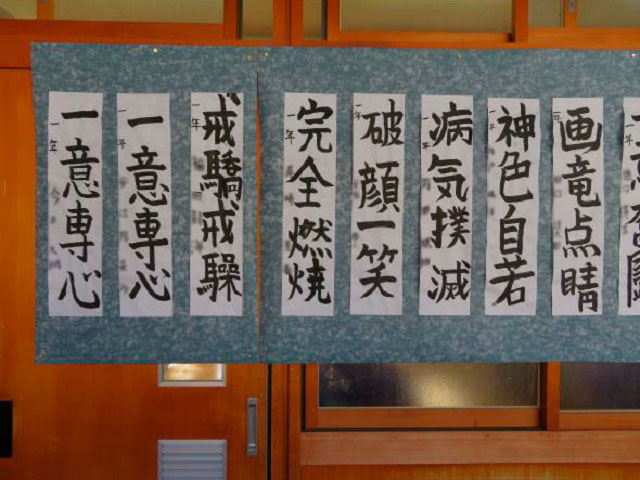 画竜点睛
一年
神色自若
一年
病気撲滅
一年
破顔一笑
一年
完全燃焼
一年
戒驕戒躁
一年
一意専心
一年
一意専心
一年